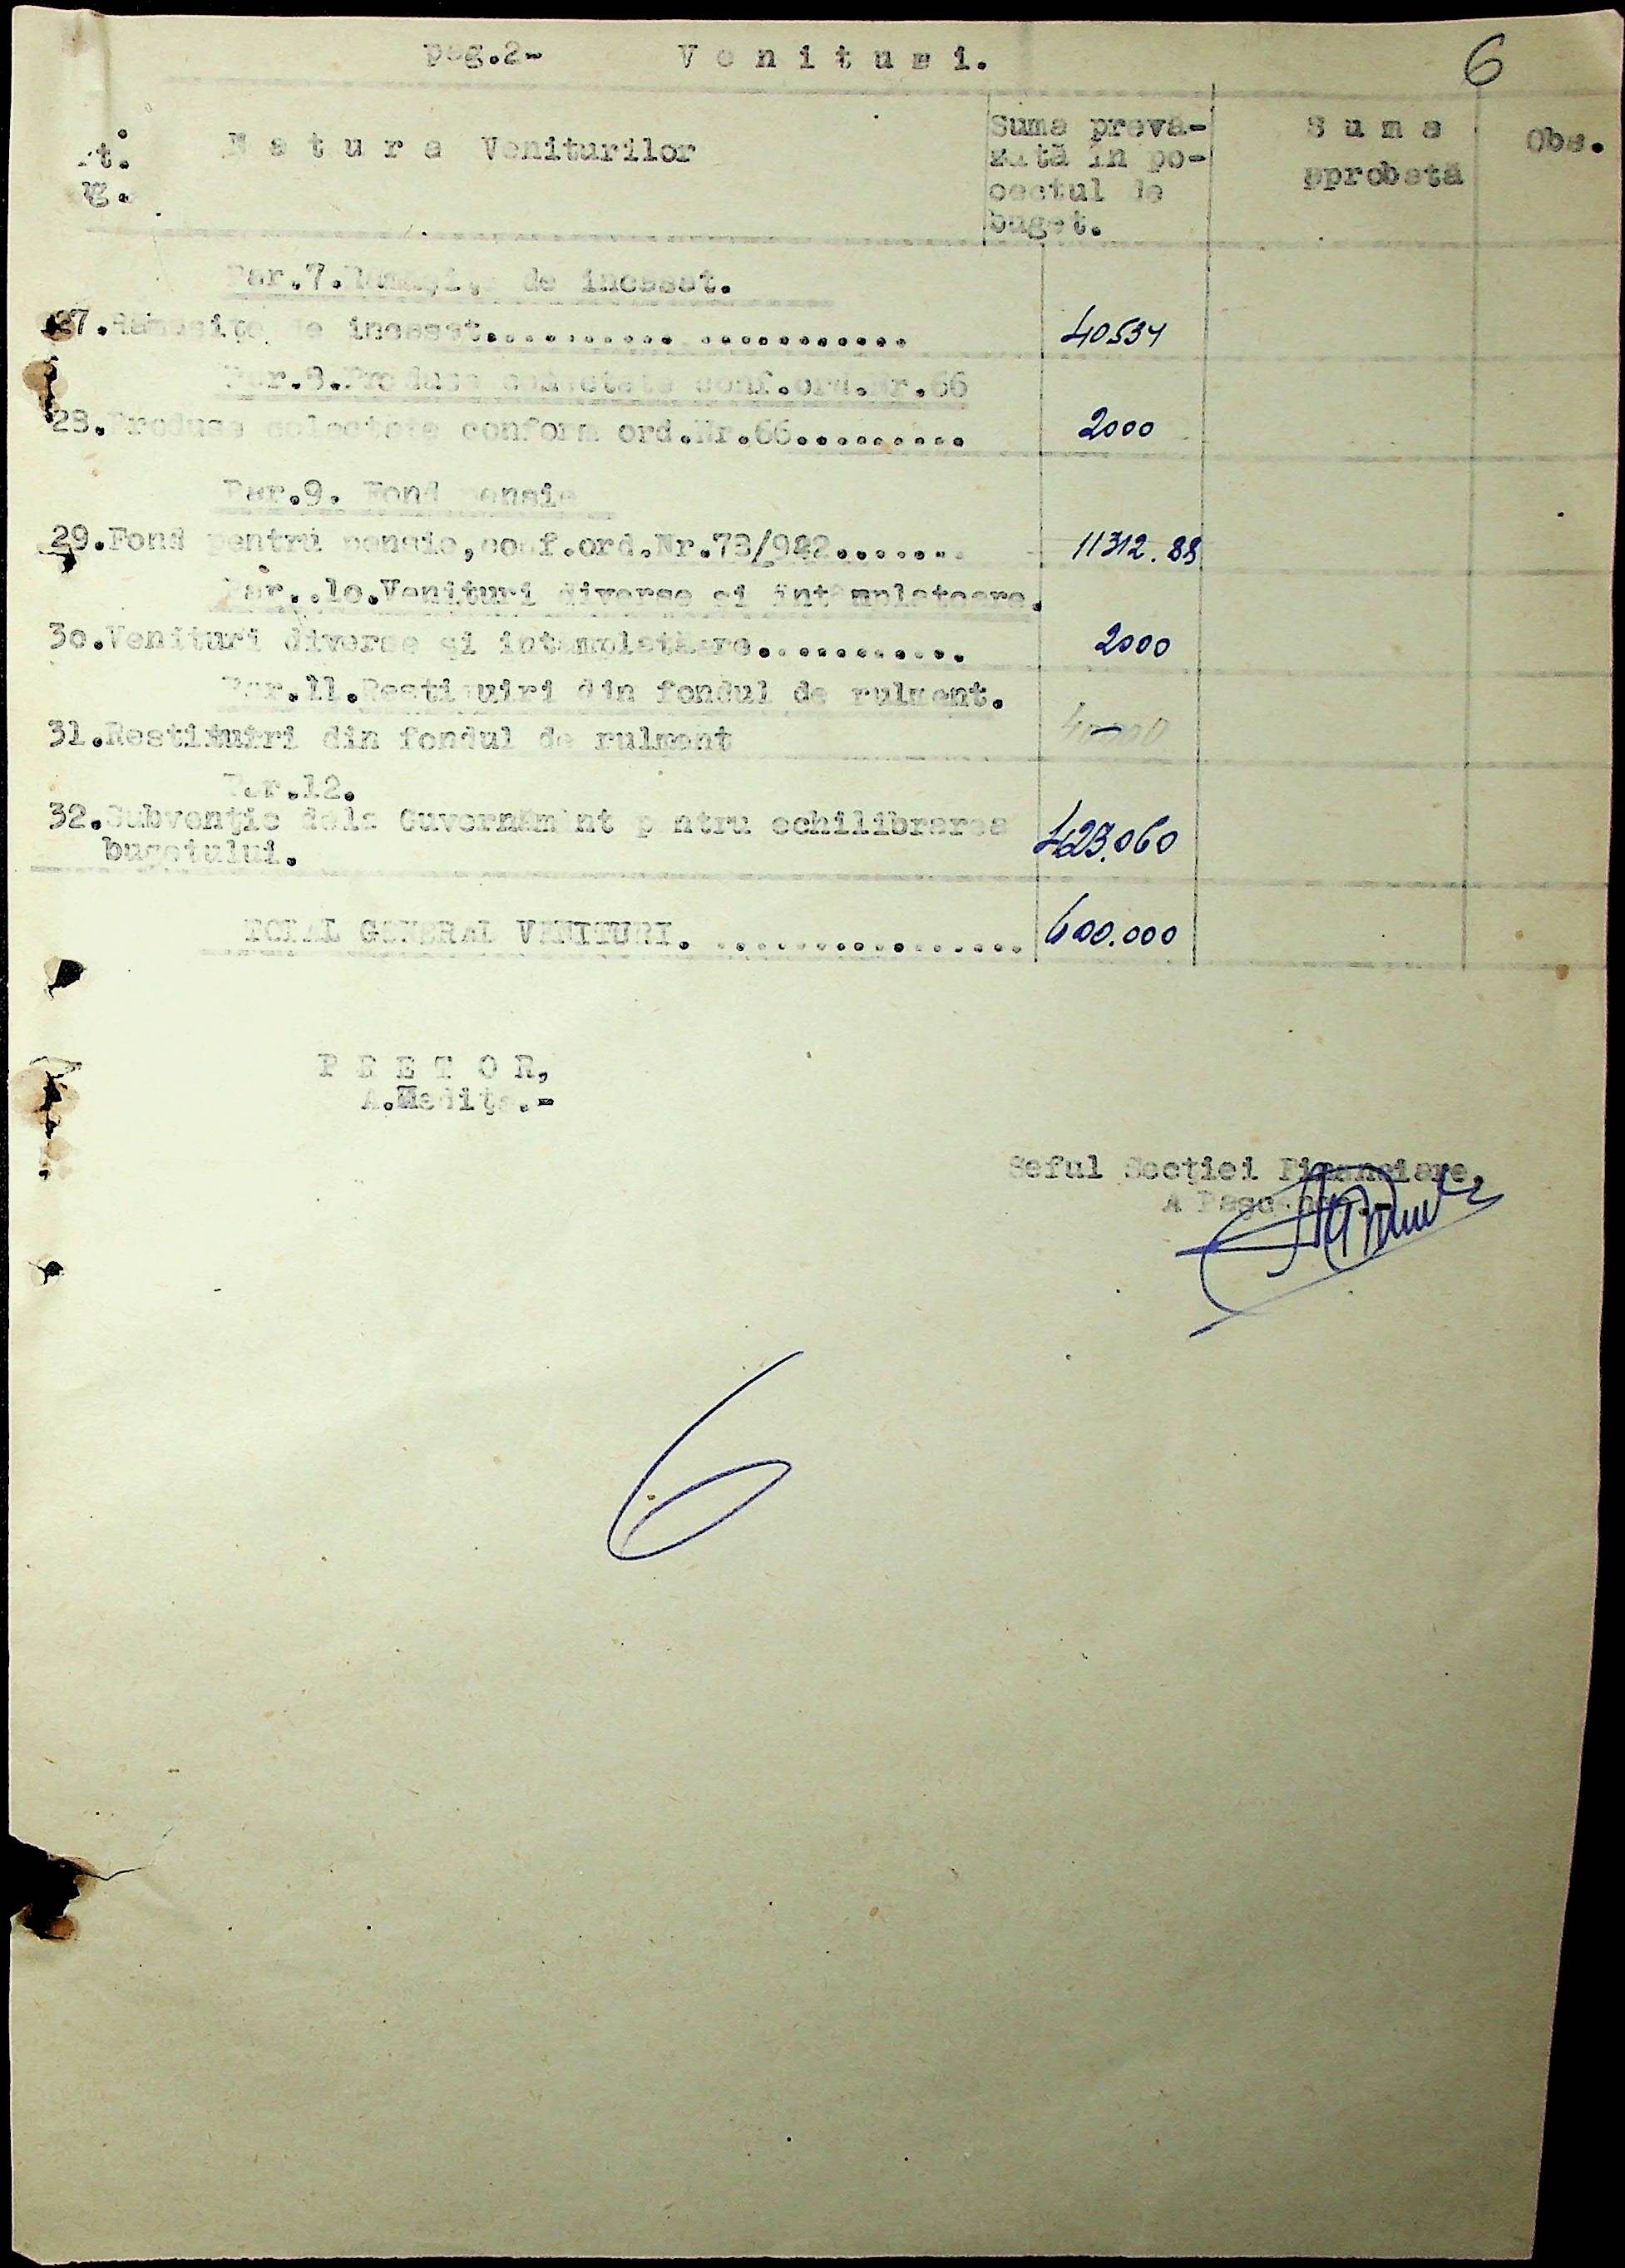 pag.2- V e n i t u r i.
6
rt.
g.
N a t u r a Veniturilor
Suma prevă-
zută în po-
oectul de
buget.
S u m a
pprobată
Obs.
Par.7. de incasat.
27. de incasat...........
40534
Par.8.Produse colectate conf.ord.Nr.66
28.Produse colectate conform ord.Nr.66.........
2000
Par.9. Fond pensie
29.Fond pentru pensie,conf.ord.Nr.78/942.......
11312.88
Par..lo.Venituri diverse si întâmplatoare.
3o.Venituri diverse şi intamplatoare...........
2000
Par.11.Restituiri din fondul de rulment.
31.Restituiri din fondul de rulment
Par.12.
32.Subvenţie dela Guvernământ pentru echilibrarea
bugetului.
423.060
TOTAL GENERAL VENITURI. .................
600.000
P R E T O R,
Seful Secţiei Financiare,
6